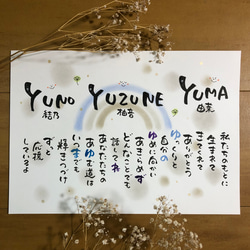 YUNO
結乃
YUZUNE
柚音
YUMA
由茉
私たちのもとに
生まれて
きてくれて
ありがとう
ゆっくりと
自分の
ゆめに向かい
あきらめず
どんなことでも
話してね
あなたたちの
あゆむ道は
いつまでも
輝きつづけ
ずっと
応援
しているよ